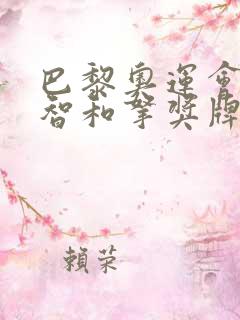 巴黎奧運會
智和拿獎牌
賴荣